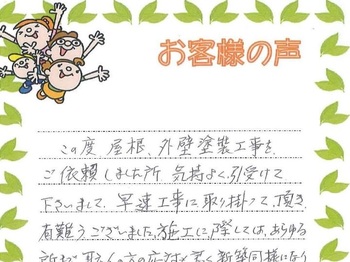 お客様の声
この度、屋根、外壁塗装工事を、
ご依頼しました所 気持よく引受けて
下さいまして、早速工事に取り掛って頂き
有難うございました。施工に際しては、あらゆる
の方の応対が良く新築同様になり